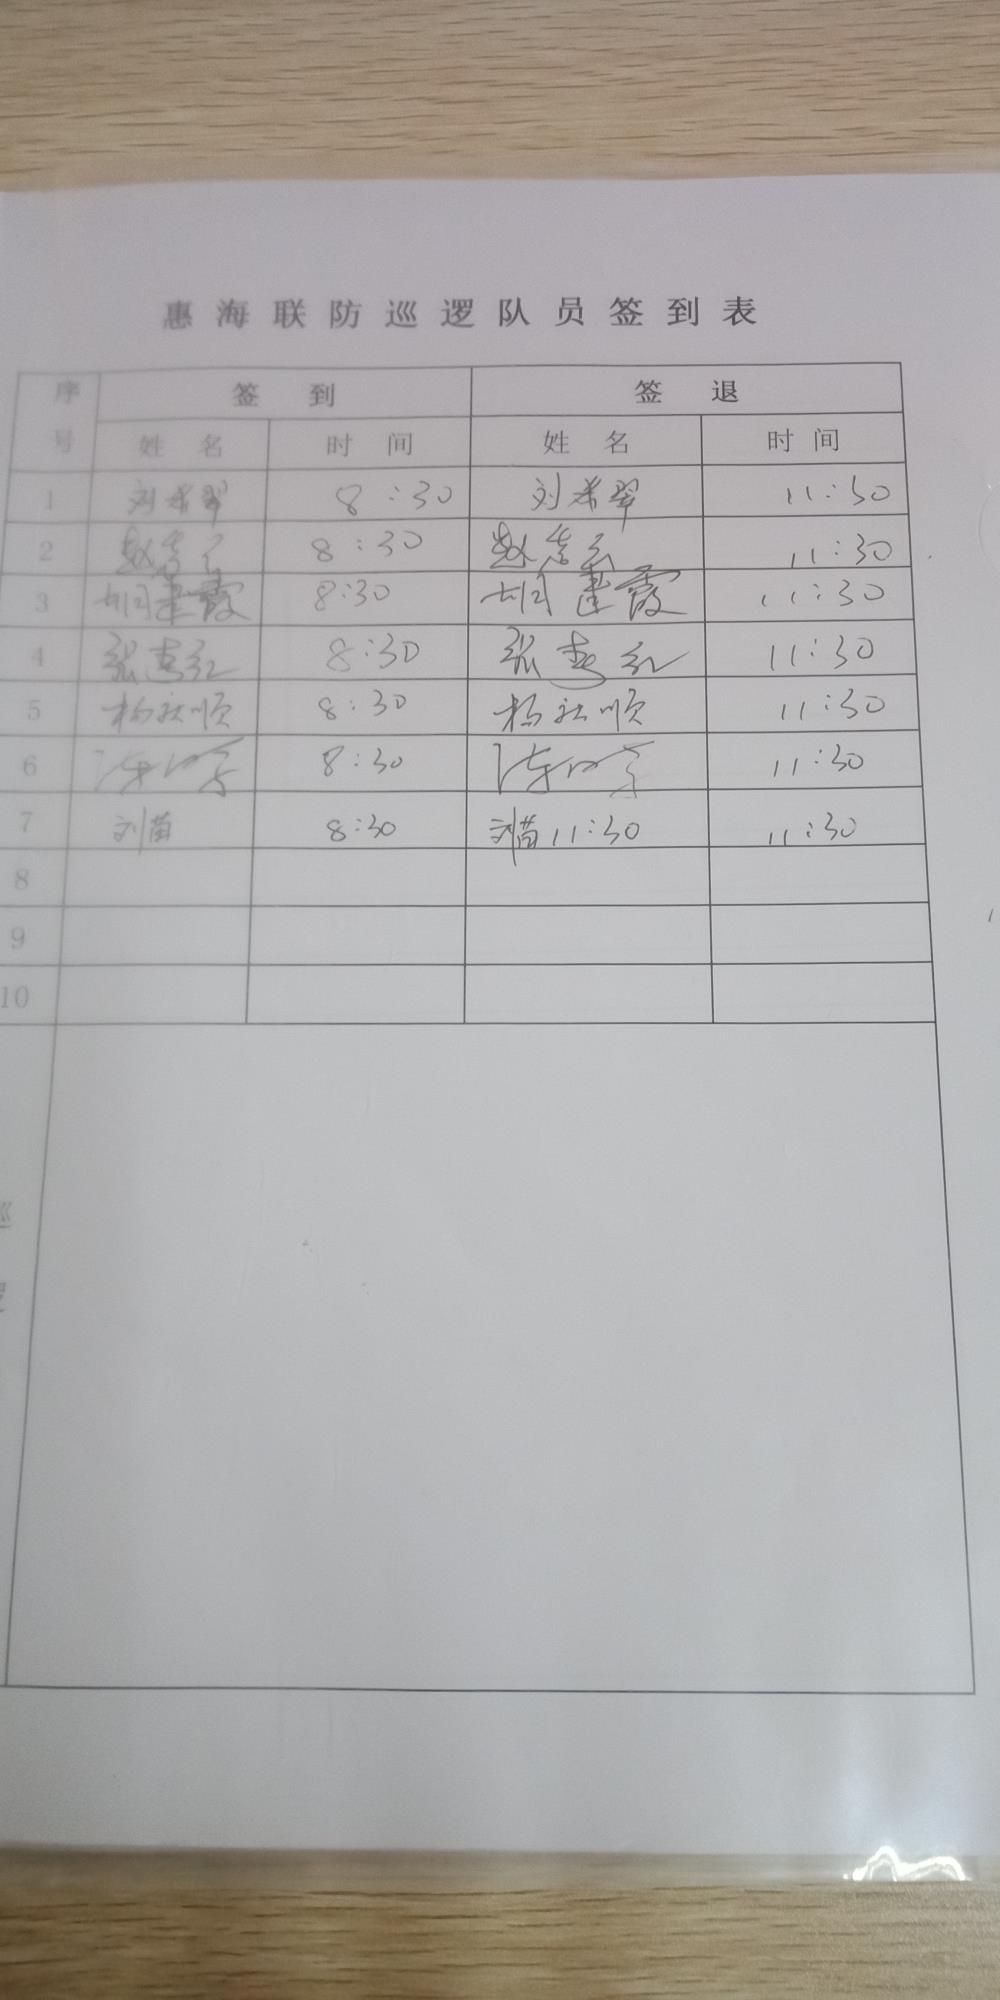 惠海联防巡逻队员签到表
序号 签到 签退
姓名 时间 姓名 时间
1 刘希翠 8:30 刘希翠 11:30
2 8:30 11:30
3 胡建霞 8:30 胡建霞 11:30
4 张春红 8:30 张春红 11:30
5 杨社顺 8:30 杨社顺 11:30
6 8:30 11:30
7 刘苗 8:30 刘苗 11:30 11:30
8
9
10
巡
逻